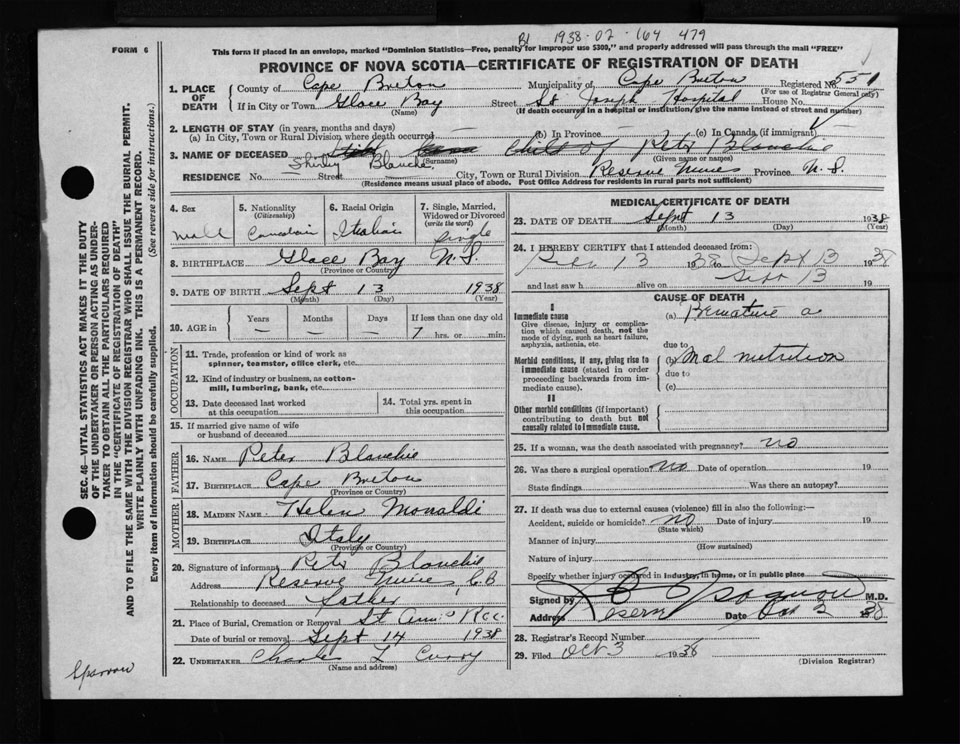 B1 1938-02-164 479
FORM 6
This form if placed in an envelope, marked "Dominion Statistics—Free, penalty for improper use $300," and properly addressed will pass through the mail "FREE"
PROVINCE OF NOVA SCOTIA—CERTIFICATE OF REGISTRATION OF DEATH
1. PLACE OF DEATH
County of Cape Breton Municipality of Cape Breton Registered No. 551
(For use of Registrar General only)
If in City or Town Glace Bay Street St Joseph Hospital House No.
(Name) (If death occurred in a hospital or institution, give the name instead of street and number)
2. LENGTH OF STAY (in years, months and days)
(a) In City, Town or Rural Division where death occurred — (b) In Province — (c) In Canada (if immigrant)
3. NAME OF DECEASED Child of Peter Blanchie
Shirley Blanche (Surname) (Given name or names)
RESIDENCE No. — Street City, Town or Rural Division Reserve Mines Province N. S.
(Residence means usual place of abode. Post Office Address for residents in rural parts not sufficient)
4. Sex Male
5. Nationality (Citizenship) Canadian
6. Racial Origin Italian
7. Single, Married, Widowed or Divorced (write the word) Single
8. BIRTHPLACE Glace Bay N. S.
(Province or Country)
9. DATE OF BIRTH Sept 13 1938
(Month) (Day) (Year)
10. AGE in Years — Months — Days — If less than one day old 7 hrs. or min.
OCCUPATION
11. Trade, profession or kind of work as spinner, teamster, office clerk, etc.
12. Kind of industry or business, as cotton-mill, lumbering, bank, etc.
13. Date deceased last worked at this occupation
14. Total yrs. spent in this occupation
15. If married give name of wife or husband of deceased
FATHER
16. NAME Peter Blanchie
17. BIRTHPLACE Cape Breton
(Province or Country)
MOTHER
18. MAIDEN NAME Helen Monaldi
19. BIRTHPLACE Italy
(Province or Country)
20. Signature of informant Peter Blanchie
Address Reserve Mines C.B
Relationship to deceased Father
21. Place of Burial, Cremation or Removal St Ann's
Date of burial or removal Sept 14 1938
22. UNDERTAKER Charles L Curry
(Name and address)
MEDICAL CERTIFICATE OF DEATH
23. DATE OF DEATH Sept 13 1938
(Month) (Day) (Year)
24. I HEREBY CERTIFY that I attended deceased from:
13 1938 Sept 13 1938
and last saw h alive on Sept 13 19
CAUSE OF DEATH
I
Immediate cause (a) Premature
Give disease, injury or complication which caused death, not the mode of dying, such as heart failure, asphyxia, asthenia, etc.
due to
Morbid conditions, if any, giving rise to immediate cause (stated in order proceeding backwards from immediate cause).
(b) Mal nutrition
due to
(c)
II
Other morbid conditions (if important) contributing to death but not causally related to immediate cause.
25. If a woman, was the death associated with pregnancy? no
26. Was there a surgical operation no Date of operation 19
State findings Was there an autopsy?
27. If death was due to external causes (violence) fill in also the following:—
Accident, suicide or homicide? no Date of injury 19
(State which)
Manner of injury
(How sustained)
Nature of injury
Specify whether injury occurred in industry, in home, or in public place
Signed by M.D.
Address Reserve Date 2 38
28. Registrar's Record Number
29. Filed Oct 3 1938
(Division Registrar)
SEC. 46—VITAL STATISTICS ACT MAKES IT THE DUTY
OF THE UNDERTAKER OR PERSON ACTING AS UNDER-
TAKER TO OBTAIN ALL THE PARTICULARS REQUIRED
IN THE "CERTIFICATE OF REGISTRATION OF DEATH"
AND TO FILE THE SAME WITH THE DIVISION REGISTRAR WHO SHALL ISSUE THE BURIAL PERMIT.
WRITE PLAINLY WITH UNFADING INK. THIS IS A PERMANENT RECORD.
Every item of Information should be carefully supplied. (See reverse side for instructions.)
Sparrow